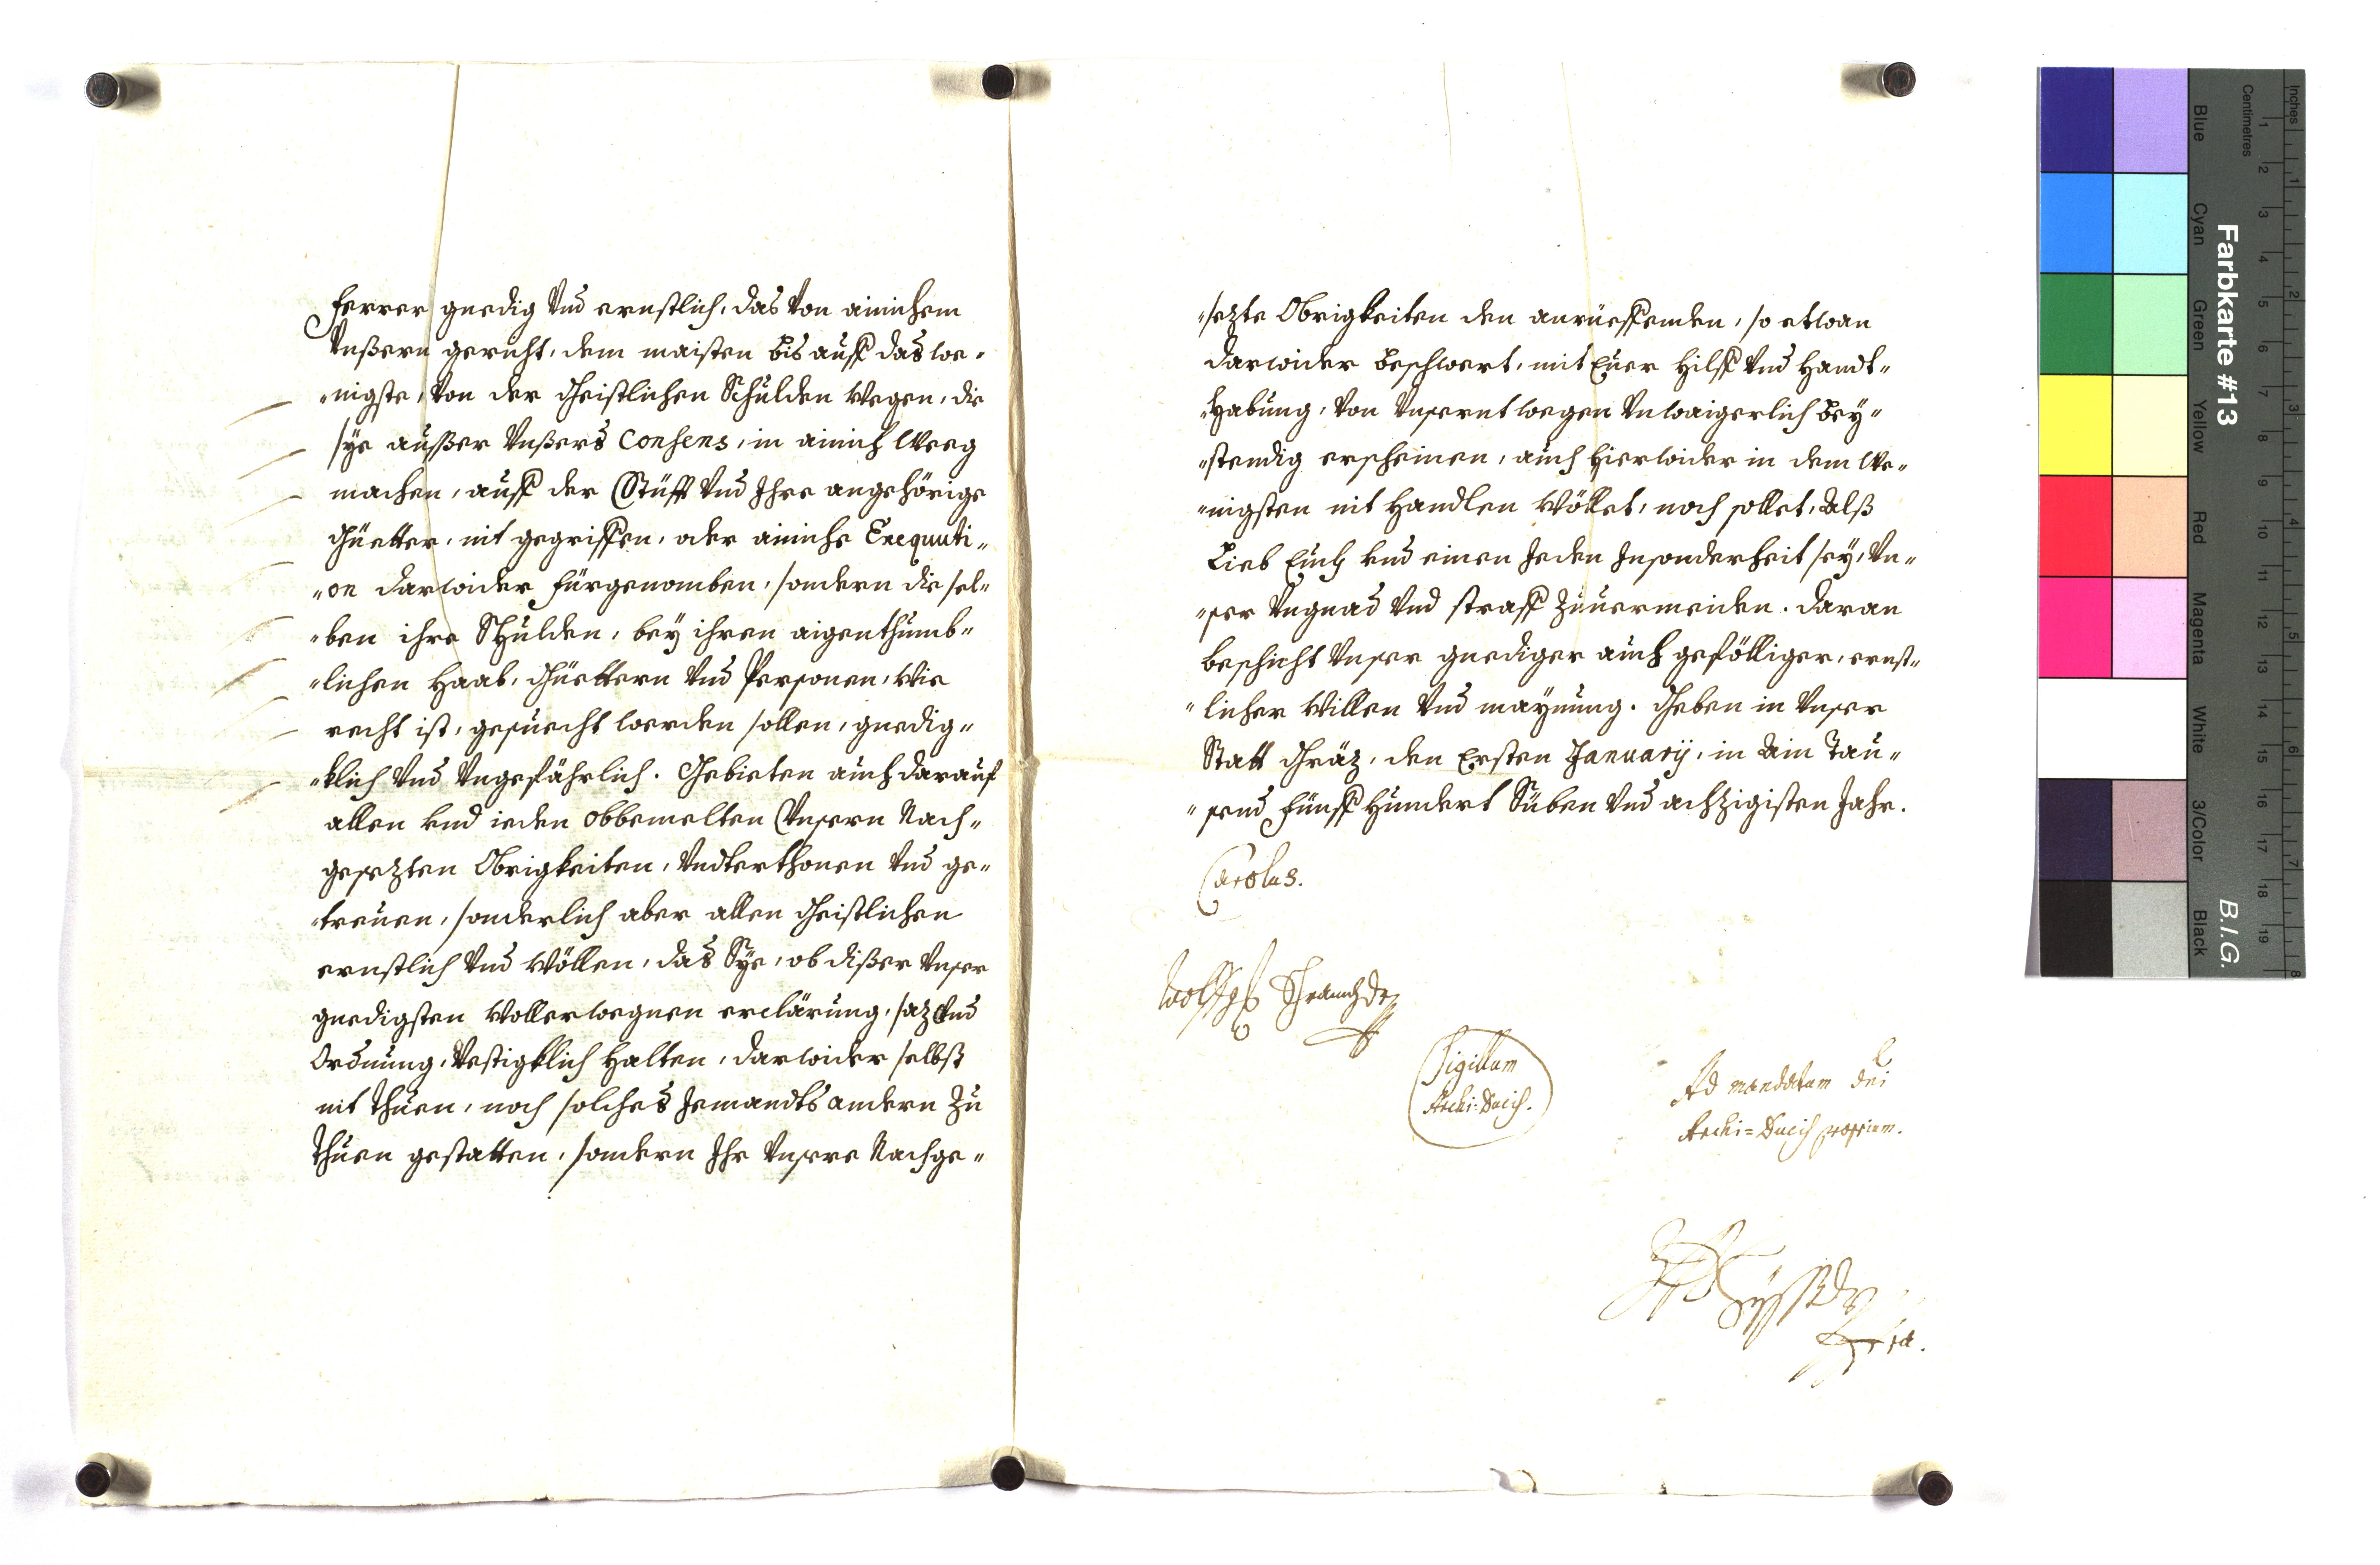 ferrer gnedig Vnd ernstlich, das Von ainichem
Vnßern gericht, dem maisten bis auff das we„
„nigste, Von der Geistlichen Schulden wegen, die
sye ausser Vnßers Consens, in ainich Weeg
machen, auff der Stüfft Vnd Ihre angehörige
Güetter, nit gegriffen, oder ainiche Exequuti„
„on darwider fürgenomben, sondern die sel„
„ben ihre Schulden, bey ihren aigenthumb„
„lichen Haab, Güettern Vnd Personen, wie
recht ist, gesuecht werden sollen, gnedig„
„klich Vnd Vngefährlich. Gebieten auch darauf
allen vnd ieden obbemelten Vnsern Nach„
gesezten Obrigkeiten, Vndterthonen Vnd ge„
„treuen, sonderlich aber allen Geistlichen
ernstlich Vnd wöllen, das Sye, ob dißer Vnser
gnedigsten wollerwegnen erclärung, saz Vnd
Ordnung, Vestigklich halten, darwider selbst
nit thuen, noch solches Jemandts andern zu
thuen gestatten, sondern Ihr Vnsere Nachge„
„sezte Obrigkeiten den anrüeffenden, so etwan
darwider beschwert, mit Euer hilff Vnd handt„
„habung, Von Vnserntwegen Vnwaigerlich bey„
„stendig erscheinen, auch hierwider in dem We„
„nigsten nit handlen wöllet, noch sollet, Alß
Lieb Euch vnd einen Jeden Insonderheit sey, Vn„
„ser Vngnad Vnd straff zuuermeiden. Daran
beschicht Vnser gnediger auch gefölliger, ernst„
„licher willen Vnd maynung. Geben in Vnser
Statt Gräz, den Ersten January, in Ain Tau„
„send Fünff Hundert Süben Vnd achzigisten Jahr.
Carolus.
Wolffg Schranz Dr
Sigillum
Archi-Ducis.
Ad mandatum Dni
Archi=Ducis proprium.
Farbkarte #13
B.I.G.
Inches
Centimetres
Blue
Cyan
Green
Yellow
Red
Magenta
White
3/Color
Black
1 2 3 4 5 6 7 8 9 10 11 12 13 14 15 16 17 18 19
1 2 3 4 5 6 7 8